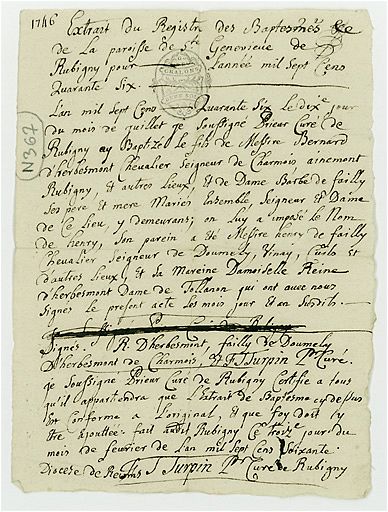 1746
Extrait du Registre des Baptesmes &c
de La paroisse de Ste Genevieve de
Rubigny pour Lannée mil Sept Cens
Quarante Six
L'an mil Sept Cens Quarante Six le dixe jour
du mois de juillet je Soussigné Prieur Curé de
Rubigny ay Baptizé le fils de Messire Bernard
d'herbesmont Chevalier Seigneur de Charmois ainemont
Rubigny, et autres Lieux, et de Dame Barbe de failly
Ses pere et mere Mariés Ensemble, Seigneur et Dame
de Ce Lieu y demeurans; on Luy a imposé le Nom
de henry, Son parein a été Messire henry de failly
Chevalier Seigneur de Doumely, Vinay, et
d'autres Lieux, et Sa Mareine Damoiselle Reine
d'herbesmont Dame de Tollanon qui ont avec nous
Signés Le present acte Les mois jour et an Susdits.
Signés. R. D'herbesmont, failly de Doumely
D'herbesmont de Charmois, F. T. Turpin Pr Curé.
je Soussigné Prieur Curé de Rubigny Certifie a tous
qu'il appartiendra que L'Extrait de Baptesme cy deSus
Est Conforme a L'original, et que foy doit y
être ajouttée. fait audit Rubigny Ce jour du
mois de fevrier de Lan mil Sept Cens Soixante.
Diocese de Reims F T Turpin Pr Curé de Rubigny
N367